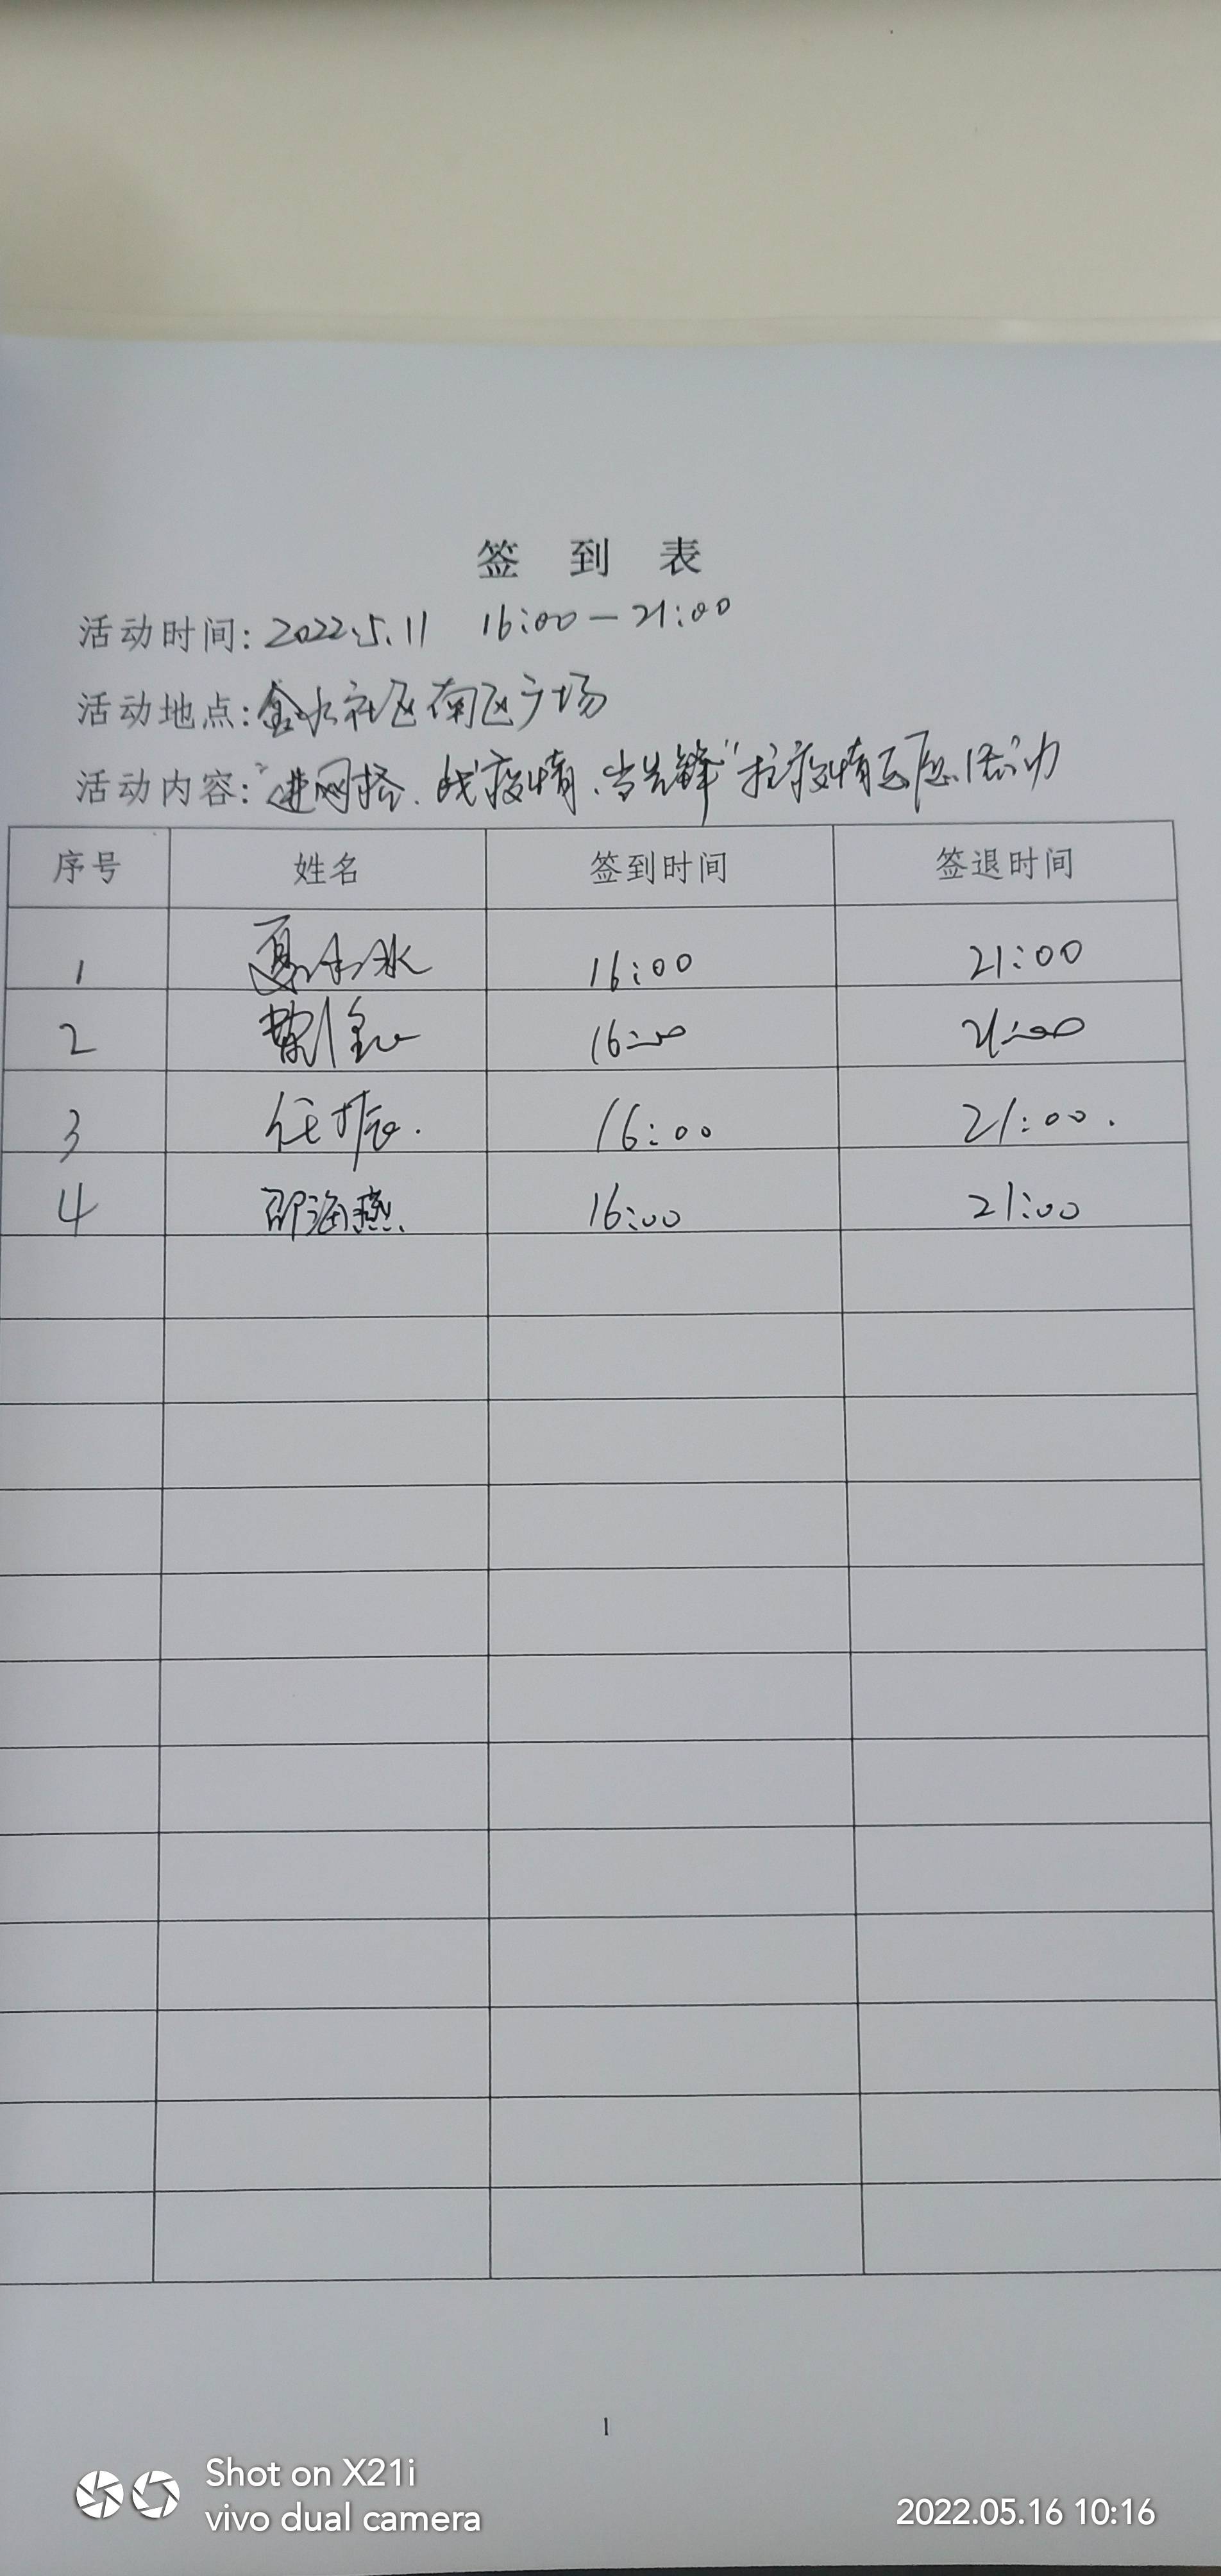 签 到 表
活动时间: 2022.5.11 16:00—21:00
活动地点: 金水社区南区广场
活动内容: "进网格、战疫情、当先锋"抗疫情志愿活动
序号 姓名 签到时间 签退时间
1 夏 冰 16:00 21:00
2 16:00 21:00
3 任振 16:00 21:00.
4 邵海燕 16:00 21:00
1
Shot on X21i
vivo dual camera
2022.05.16 10:16